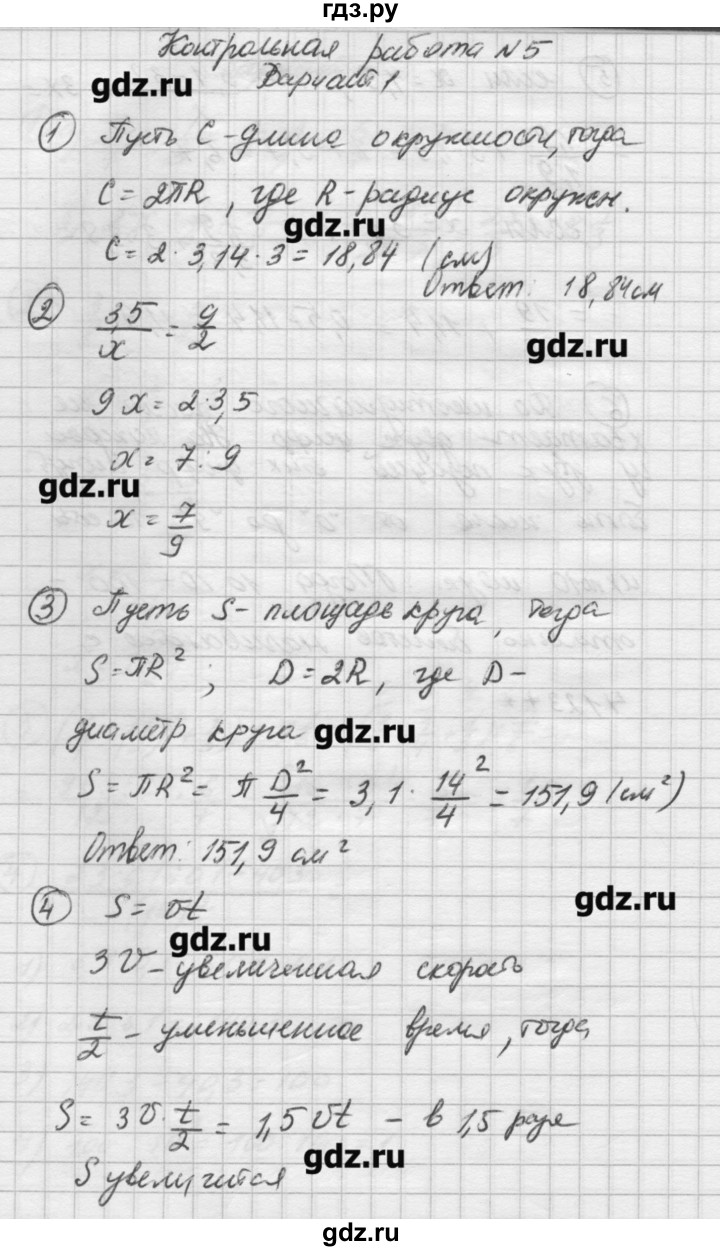 гдз.ру
Контрольная работа №5
gdz.ru
Вариант 1
① Пусть C - длина окружности, тогда
C = 2πR, где R - радиус окружн.
gdz.ru
C = 2 · 3,14 · 3 = 18,84 (см)
Ответ: 18,84 см
② 3,5/x = 9/2
gdz.ru
9x = 2·3,5
x = 7 : 9
gdz.ru
x = 7/9
③ Пусть S - площадь круга, тогда
S = πR²; D = 2R, где D -
диаметр круга
gdz.ru
S = πR² = π D²/4 = 3,1 · 14²/4 = 151,9 (см²)
Ответ: 151,9 см²
gdz.ru
④ S = vt
gdz.ru
3v - увеличенная скорость
t/2 - уменьшенное время, тогда
S = 3v · t/2 = 1,5 vt - в 1,5 раза
gdz.ru
S увеличится
gdz.ru